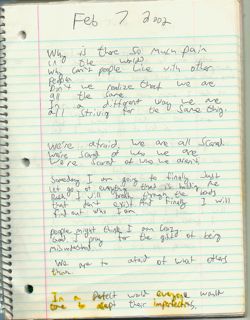 Feb 7 2002
Why is there so much pain
in the world?
Why can't people live with other
people
Don't we realize that we are
all the same.
In a different way we are
all striving for the same thing.
We're afraid, we are all scared.
We're scared of who we are
We're scared of who we aren't.
Someday I am going to finally just
let go of everything that is holding me
back. I will break through the
that don't exist and finally I will
find out who I am.
people might think I am crazy
but I pray for the gift of being
misunderstood.
We are to afraid of what others
think.
In a perfect world everyone would
their imperfections.